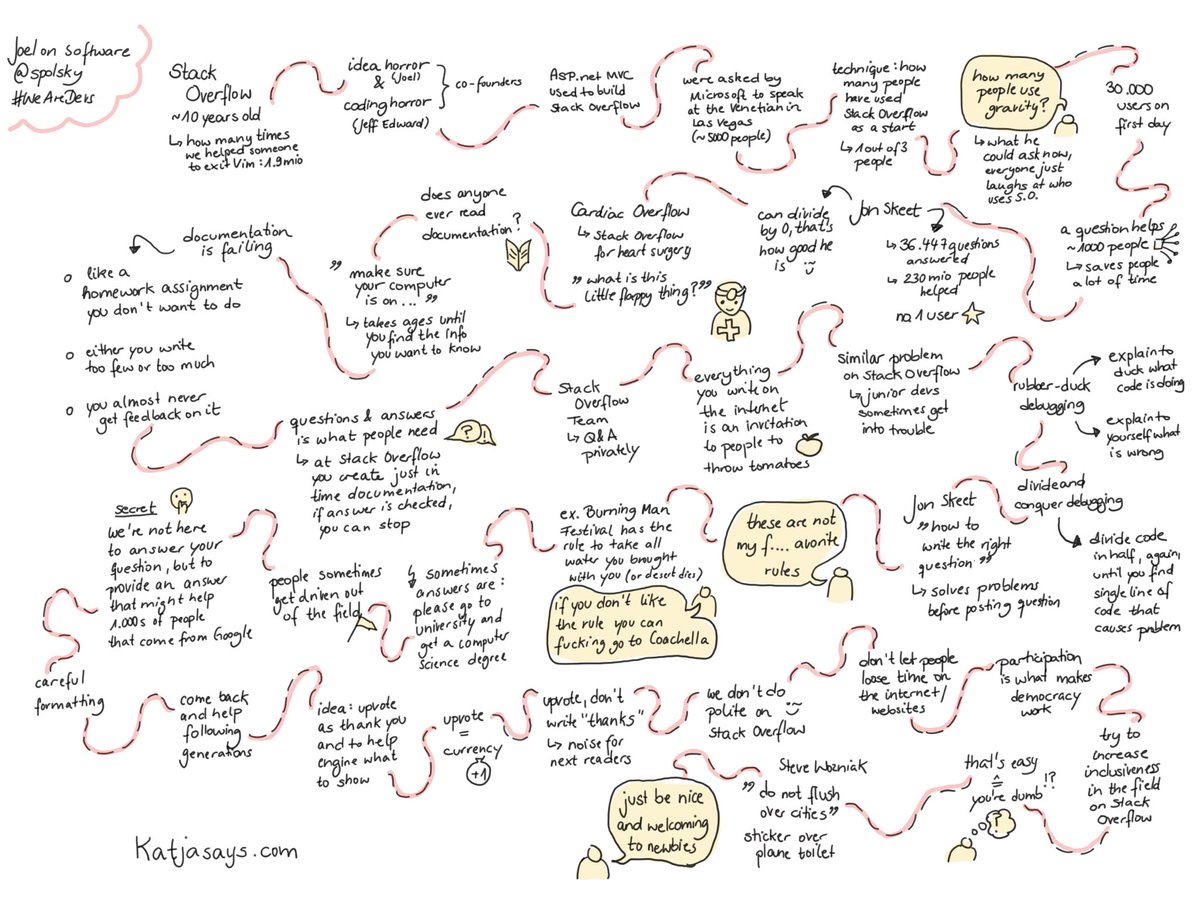 Joel on Software
@spolsky
#WeAreDevs
Stack
Overflow
~10 years old
↳ how many times
we helped someone
to exit Vim: 1.9mio
idea horror
& (Joel)
coding horror
(Jeff Edward)
co-founders
ASP.net MVC
used to build
Stack Overflow
were asked by
Microsoft to speak
at the Venetian in
Las Vegas
(~5000 people)
technique: how
many people
have used
Stack Overflow
as a start
↳ 1 out of 3
people
how many
people use
gravity?
↳ what he
could ask now,
everyone just
laughs at who
uses S.O.
30.000
users on
first day
a question helps
~1000 people
↳ saves people
a lot of time
Jon Skeet
↳ 36.447 questions
answered
↳ 230 mio people
helped
no 1 user
can divide
by 0, that's
how good he
is
Cardiac Overflow
↳ Stack Overflow
for heart surgery
"what is this
little floppy thing?"
does anyone
ever read
documentation?
"make sure
your computer
is on ..."
↳ takes ages until
you find the info
you want to know
documentation
is failing
o like a
homework assignment
you don't want to do
o either you write
too few or too much
o you almost never
get feedback on it
questions & answers
is what people need
? !
↳ at Stack Overflow
you create just in
time documentation,
if answer is checked,
you can stop
Stack
Overflow
Team
↳ Q&A
privately
everything
you write on
the internet
is an invitation
to people to
throw tomatoes
similar problem
on Stack Overflow
↳ junior devs
sometimes get
into trouble
rubber-duck
debugging
explain to
duck what
code is doing
explain to
yourself what
is wrong
divide and
conquer debugging
divide code
in half, again,
until you find
single line of
code that
causes problem
Jon Skeet
"how to
write the right
question"
↳ solves problems
before posting question
these are not
my f....avorite
rules
ex. Burning Man
Festival has the
rule to take all
water you brought
with you (or desert dies)
if you don't like
the rule you can
fucking go to Coachella
sometimes
answers are:
please go to
university and
get a computer
science degree
people sometimes
get driven out
of the field
secret
we're not here
to answer your
question, but to
provide an answer
that might help
1.000s of people
that come from Google
careful
formatting
come back
and help
following
generations
idea: upvote
as thank you
and to help
engine what
to show
upvote
=
currency
+1
upvote, don't
write "thanks"
↳ noise for
next readers
we don't do
polite on
Stack Overflow
don't let people
lose time on
the internet/
websites
participation
is what makes
democracy
work
try to
increase
inclusiveness
in the field
on Stack
Overflow
that's easy
≙
you're dumb !?
?
Steve Wozniak
"do not flush
over cities"
sticker over
plane toilet
just be nice
and welcoming
to newbies
Katjasays.com